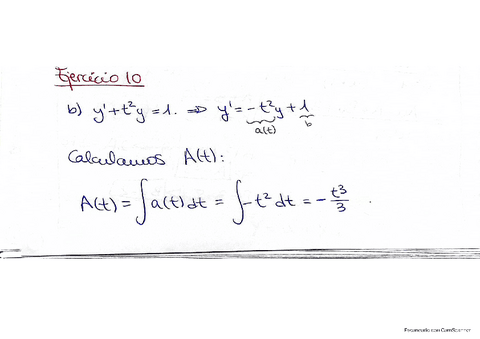 Ejercicio 10
b) y' + t²y = 1. ⇒ y' = -t²y + 1
a(t) b
Calculamos A(t):
A(t) = ∫a(t) dt = ∫-t² dt = -t³/3.
Escaneado con CamScanner